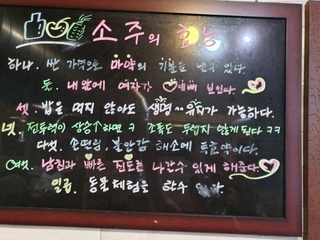 소주의 효능
하나. 싼 가격으로 마약의 기분을 낼수 있다.
둘. 내앞에 여자가 예뻐 보인다.
셋. 밥을 먹지 않아도 생명유지가 가능하다.
넷. 전투력이 상승↑하면 ㅋ 조폭도 무섭지 않게된다 ㅋㅋ
다섯. 손떨림, 불안감 해소에 특효약이다.
여섯. 남친과 빠른 진도로 나갈수 있게 해준다.
일곱. 동물체험을 할수